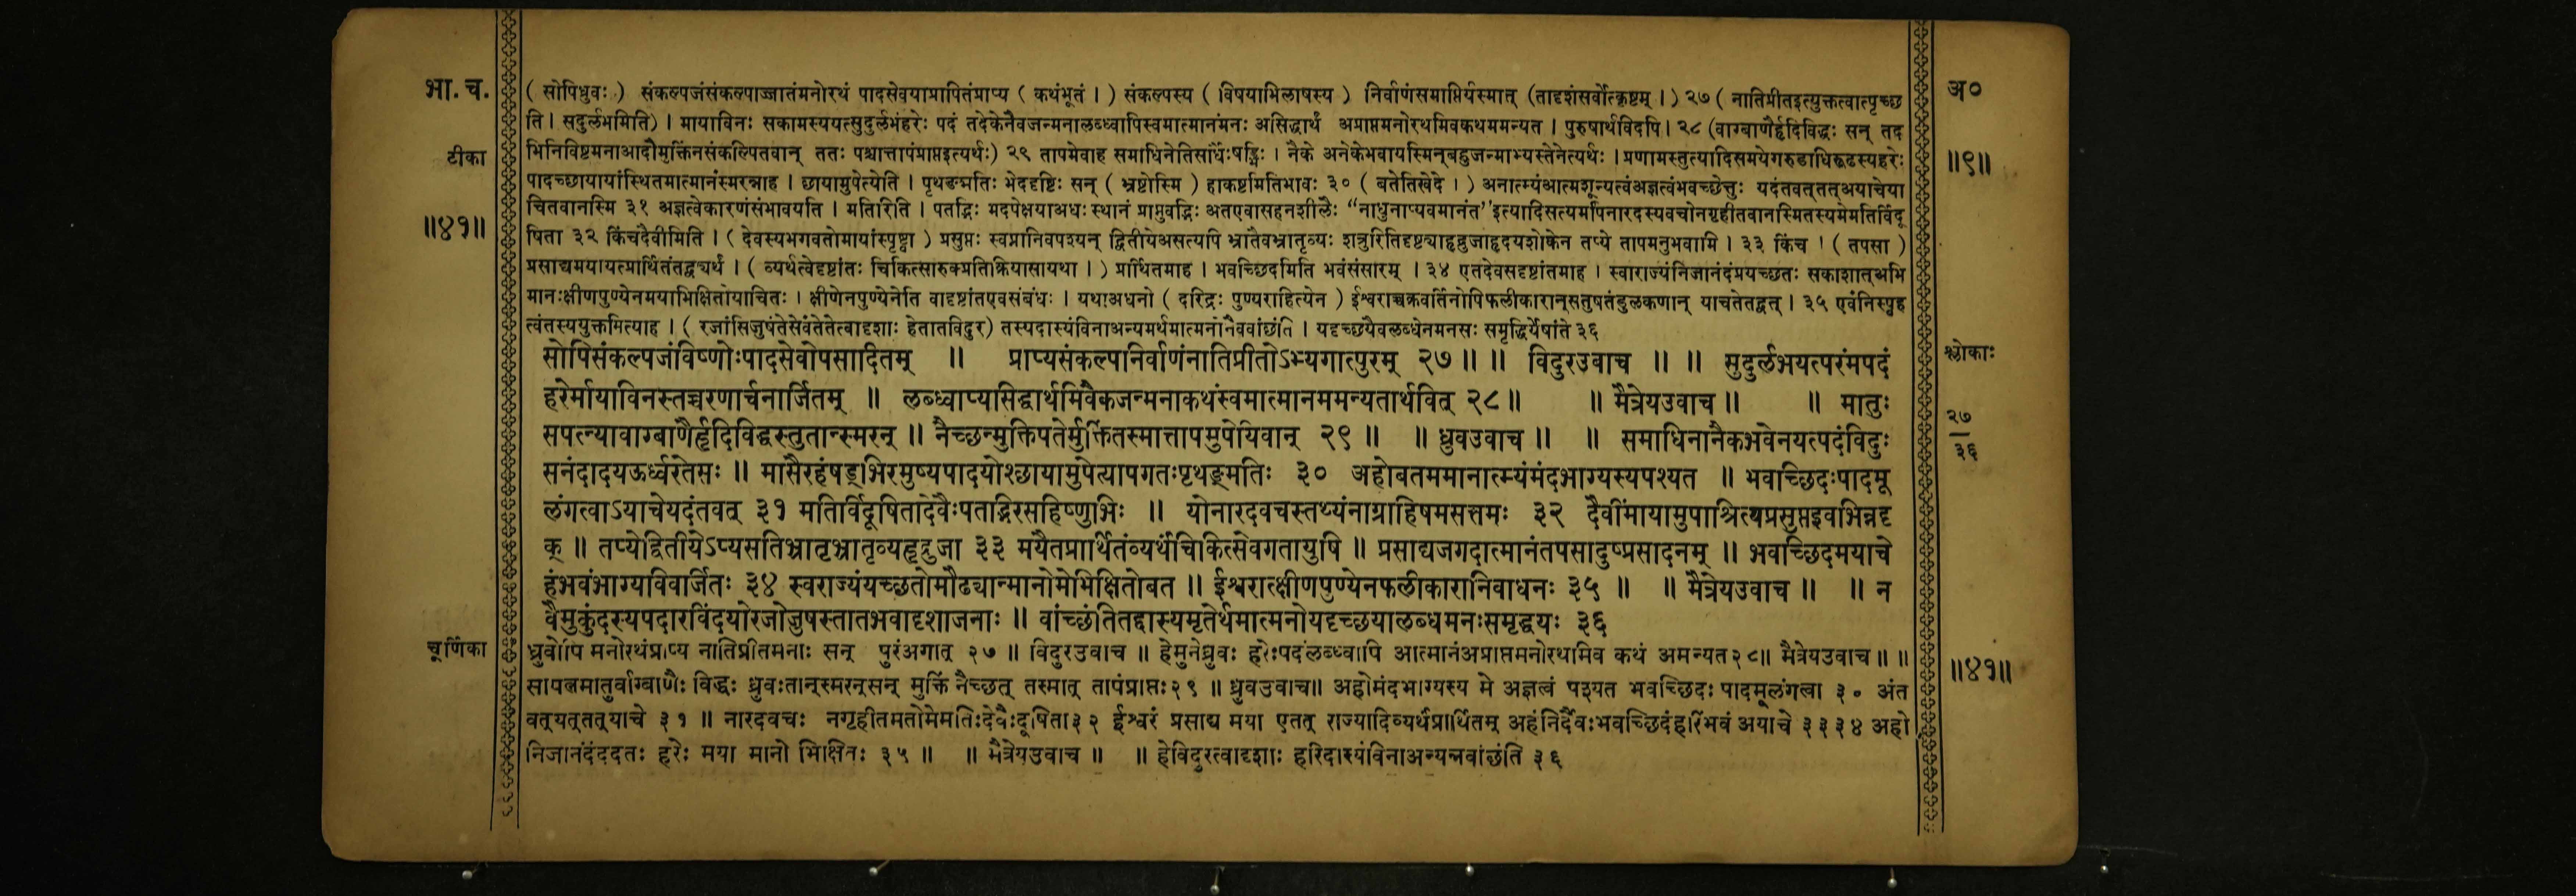 भा. च.
टीका
॥४१॥
चूर्णिका
( सोपिध्रुवः ) संकल्पजंसंकल्पाज्जातंमनोरथं पादसेवयाप्रापितंप्राप्य ( कथंभूतं । ) संकल्पस्य ( विषयाभिलाषस्य ) निर्वाणंसमाप्तिर्यस्मात् (तादृशंसर्वोत्कृष्टम् । ) २७ ( नातिप्रीतइत्युक्तत्वात्पृच्छ
ति । सदुर्लभमिति) । मायाविनः सकामस्ययत्सुदुर्लभंहरेः पदं तदेकेनैवजन्मनालब्ध्वापिस्वमात्मानंमनः असिद्धार्थं अप्राप्तमनोरथमिवकथममन्यत । पुरुषार्थविदपि । २८ (वाग्बाणैर्हृदिविद्धः सन् तद
भिनिविष्टमनाआदौमुक्तिंनसंकल्पितवान् ततः पश्चात्तापंप्राप्तइत्यर्थः) २९ तापमेवाह समाधिनेतिसार्धैःषड्भिः । नैके अनेकेभवायस्मिन्बहुजन्माभ्यस्तेनेत्यर्थः । प्रणामस्तुत्यादिसमयेगरुडाधिरूढस्यहरेः
पादच्छायायांस्थितमात्मानंस्मरन्नाह । छायामुपेत्येति । पृथङ्मतिः भेददृष्टिः सन् ( भ्रष्टोस्मि ) हाकष्टमितिभावः ३० ( बतेतिखेदे । ) अनात्म्यंआत्मशून्यत्वंअज्ञत्वंभवच्छेत्तुः यदंतवत्तत्अयाचेया
चितवानस्मि ३१ अज्ञत्वेकारणंसंभावयति । मतिरिति । पतद्भिः मदपेक्षयाअधःस्थानं प्राप्नुवद्भिः अतएवासहनशीलैः “नाधुनाप्यवमानंत”इत्यादिसत्यमपिनारदस्यवचोनगृहीतवानस्मितस्यमेमतिर्विदू
षिता ३२ किंचदैवीमिति । ( देवस्यभगवतोमायांस्पृष्ट्वा ) प्रसुप्तः स्वप्नानिवपश्यन् द्वितीयेअसत्यपि भ्रातैवभ्रातृव्यः शत्रुरितिदृष्ट्याहृद्रुजाहृदयशोकेन तप्ये तापमनुभवामि । ३३ किंच । ( तपसा )
प्रसाद्यमयायत्प्रार्थितंतद्व्यर्थं । ( व्यर्थत्वेदृष्टांतः चिकित्सारुक्प्रतिक्रियासायथा । ) प्रार्थितमाह । भवच्छिदमिति भवंसंसारम् । ३४ एतदेवसदृष्टांतमाह । स्वाराज्यंनिजानंदंप्रयच्छतः सकाशात्अभि
मानःक्षीणपुण्येनमयाभिक्षितोयाचितः । क्षीणेनपुण्येनेति वादृष्टांतएवसंबंधः । यथाअधनो ( दरिद्रः पुण्यराहित्येन ) ईश्वराच्चक्रवर्तिनोपिफलीकारान्सतुषतंडुलकणान् याचतेतद्वत् । ३५ एवंनिस्पृह
त्वंतस्ययुक्तमित्याह । ( रजांसिजुषंतेसेवंतेतेत्वादृशाः हेतातविदुर) तस्पदास्यंविनाअन्यमर्थमात्मनानैववांछंति । यदृच्छयैवलब्धेनमनसः समृद्धिर्येषांते ३६
सोपिसंकल्पजंविष्णोःपादसेवोपसादितम् ॥ प्राप्यसंकल्पानिर्वाणंनातिप्रीतोऽभ्यगात्पुरम् २७ ॥ ॥ विदुरउवाच ॥ ॥ सुदुर्लभयत्परंमपदं
हरेर्मायाविनस्तच्चरणार्चनार्जितम् ॥ लब्ध्वाप्यसिद्धार्थमिवैकजन्मनाकथंस्वमात्मानममन्यतार्थवित् २८ ॥ ॥ मैत्रेयउवाच ॥ ॥ मातुः
सपत्न्यावाग्बाणैर्हृदिविद्धस्तुतान्स्मरन् ॥ नैच्छन्मुक्तिपतेर्मुक्तिंतस्मात्तापमुपेयिवान् २९ ॥ ॥ ध्रुवउवाच ॥ ॥ समाधिनानैकभवेनयत्पदंविदुः
सनंदादयऊर्ध्वरेतसः ॥ मासैरहंषड्भिरमुष्यपादयोश्छायामुपेत्यापगतःपृथङ्मतिः ३० अहोबतममानात्म्यंमंदभाग्यस्यपश्यत ॥ भवाच्छिदःपादमू
लंगत्वाऽयाचेयदंतवत् ३१ मतिर्विदूषितादेवैःपतद्भिरसहिष्णुभिः ॥ योनारदवचस्तथ्यंनाग्राहिषमसत्तमः ३२ दैवींमायामुपाश्रित्यप्रसुप्तइवभिन्नदृ
क् ॥ तप्येद्वितीयेऽप्यसतिभ्रातृभ्रातृव्यहृद्रुजा ३३ मयैतप्रार्थितंव्यर्थंचिकित्सेवगतायुषि ॥ प्रसाद्यजगदात्मानंतपसादुष्प्रसादनम् ॥ भवाच्छिदमयाचे
हंभवंभाग्याविवर्जितः ३४ स्वराज्यंयच्छतोमौढ्यान्मानोमेभिक्षितोबत ॥ ईश्वरात्क्षीणपुण्येनफलीकारानिवाधनः ३५ ॥ ॥ मैत्रेयउवाच ॥ ॥ न
वैमुकुंदस्यपदारविंदयोरजोजुषस्तातभवादृशाजनाः ॥ वांच्छंतितद्दास्यमृतेर्थमात्मनोयदृच्छयालब्धमनःसमृद्धयः ३६
ध्रुवोपि मनोरथंप्राप्य नातिप्रीतमनाः सन् पुरंअगात् २७ ॥ विदुरउवाच ॥ हेमुनेध्रुवः हरेःपदंलब्ध्वापि आत्मानंअप्राप्तमनोरथमिव कथं अमन्यत२८॥ मैत्रेयउवाच ॥ ॥
सापत्नमातुर्वाग्बाणैः विद्धः ध्रुवःतान्स्मरन्सन् मुक्तिं नैच्छत् तस्मात् तापंप्राप्तः२९ ॥ ध्रुवउवाच॥ अहोमंदभाग्यस्य मे अज्ञत्वं पश्यत भवच्छिदः पादमूलंगत्वा ३० अंत
वत्यत्तत्याचे ३१ ॥ नारदवचः नगृहीतमतोमेमतिःदेवैःदूषिता३२ ईश्वरं प्रसाद्य मया एतत् राज्यादिव्यर्थंप्रार्थितम् अहंनिर्दैवःभवच्छिदंहरिंभवं अयाचे ३३३४ अहो
निजानंदंददतः हरेः मया मानो भिक्षितः ३५ ॥ ॥ मैत्रेयउवाच ॥ ॥ हेविदुरत्वादृशाः हरिदास्यंविनाअन्यन्नवांछंति ३६
अ०
॥९॥
श्लोकाः
२७
३६
॥४१॥